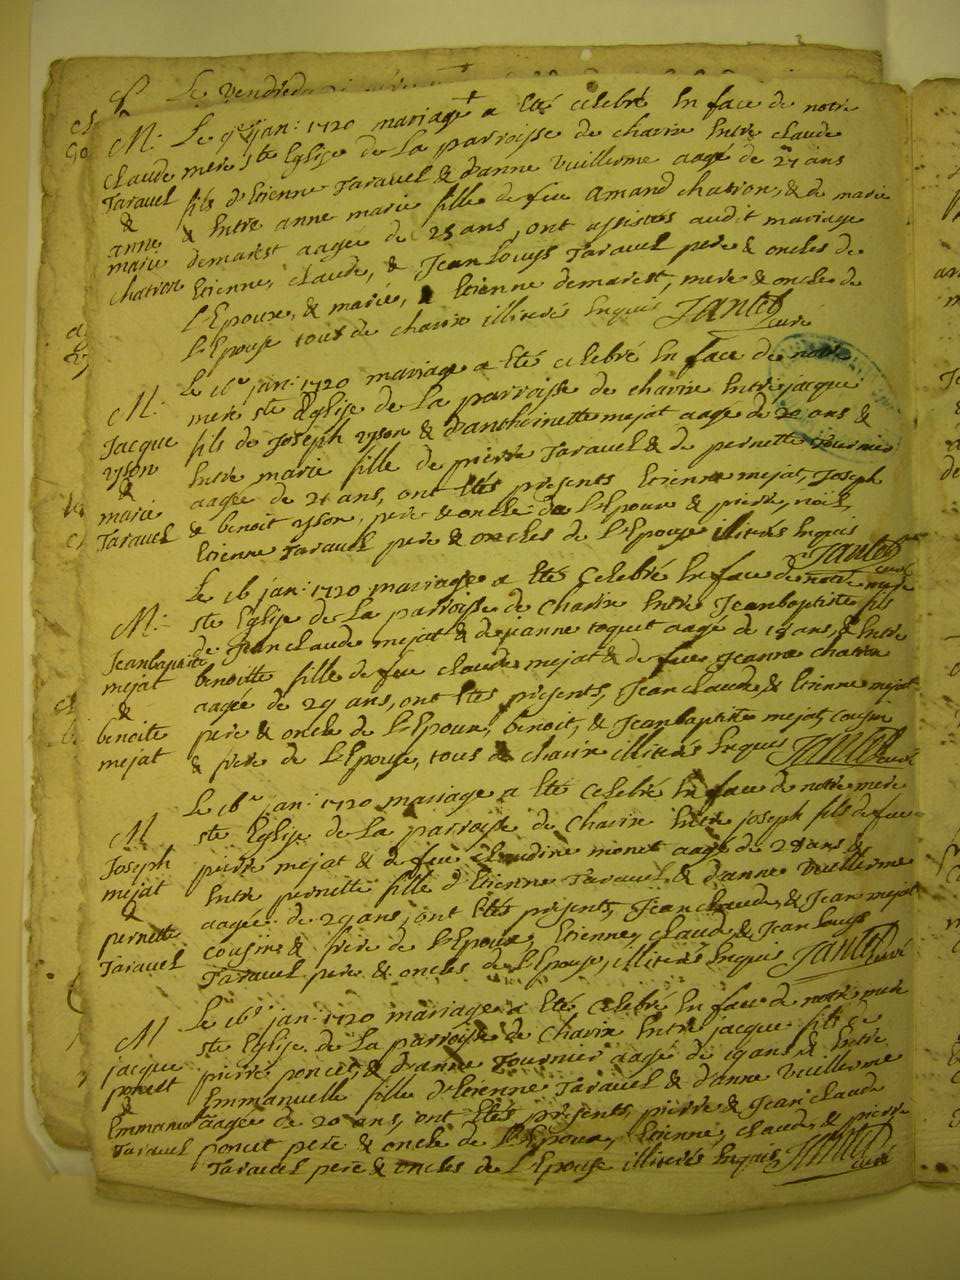 Le vendred
M: Le 9e jan: 1720 mariage a été celebré En face de notre
Claude mere ste Eglise de La parroisse de chavin Entre claude
Taravel fils d'Etienne Taravel & d'anne vuillerme aagé de 27 ans
& & Entre anne marie fille de feu amand chatron, & de marie
anne marie demarest aagée de 25 ans, ont assistes audit mariage
chatron Etienne, claude, & Jean Louys Taravel pere & oncles de
L'Epoux, & marie, Etienne demarest, mere & oncles de
L'Epouse tous de chavin illiteres Enquis Jantet
curé
Le 16e jan: 1720 mariage a Etés celebré En face de notre
M: mere ste Eglise de La parroisse de chavin Entre jacque
Jacque fils de Joseph yson & d'anthoinette mejat aagé de 20 ans &
yson Entre marie fille de pierre Taravel & de pernette fournier
& aagée de 21 ans, ont Etés presents Etienne mejat, Joseph
marie & benoit yson, pere & oncle de L'Epoux & pierre, noël,
Taravel Etienne Taravel pere & oncles de L'Epouse illiterés Enquis
Jantet curé
Le 16 jan: 1720 mariage a Etés Celebré En face de notre mere
M: ste Eglise de La parroisse de Chavin Entre Jeanbaptiste fils
Jeanbaptiste de Jean claude mejat & de jeanne toquet aagé de 18 ans, & Entre
mejat benoitte fille de feu claude mejat & de feue Jeanne chatron
& aagée de 29 ans, ont Etés presents, Jean claude, & Etienne mejat
benoite pere & oncle de L'Epoux, benoit, & Jeanbaptiste mejat, cousin
mejat & frere de L'Epouse, tous de chavin illiterés Enquis Jantet curé
Le 16e jan: 1720 mariage a Etés Celebré En face de notre mere
M ste Eglise de La parroisse de Chavin Entre joseph fils de feu
Joseph pierre mejat & de feue claudine monet aagé de 28 ans &
mejat Entre pernette fille d'Etienne Taravel & d'anne vuillerme
& aagée de 29 ans, ont Etés presents, Jean claude, & Jean mejat
pernette cousins & frere de L'Epoux, Etienne, claude, & Jean Louys
Taravel Taravel pere & oncles de L'Epouse, illiterés Enquis Jantet curé
Le 16e jan: 1720 mariage a Etés Celebré En face de notre mere
M ste Eglise de La parroisse de Chavin Entre jacque fils de
jacque pierre poncet, & d'anne Tournier aagé de 19 ans & Entre
poncet Emmanuelle fille d'Etienne Taravel & d'anne vuillerme
&
Emmanuel aagée de 20 ans, ont Etés presents, pierre & Jean claude
Taravel poncet pere & oncle de L'Epoux, Etienne, claude, & pierre
Taravel pere & oncles de L'Epouse illiterés Enquis Jantet
curé